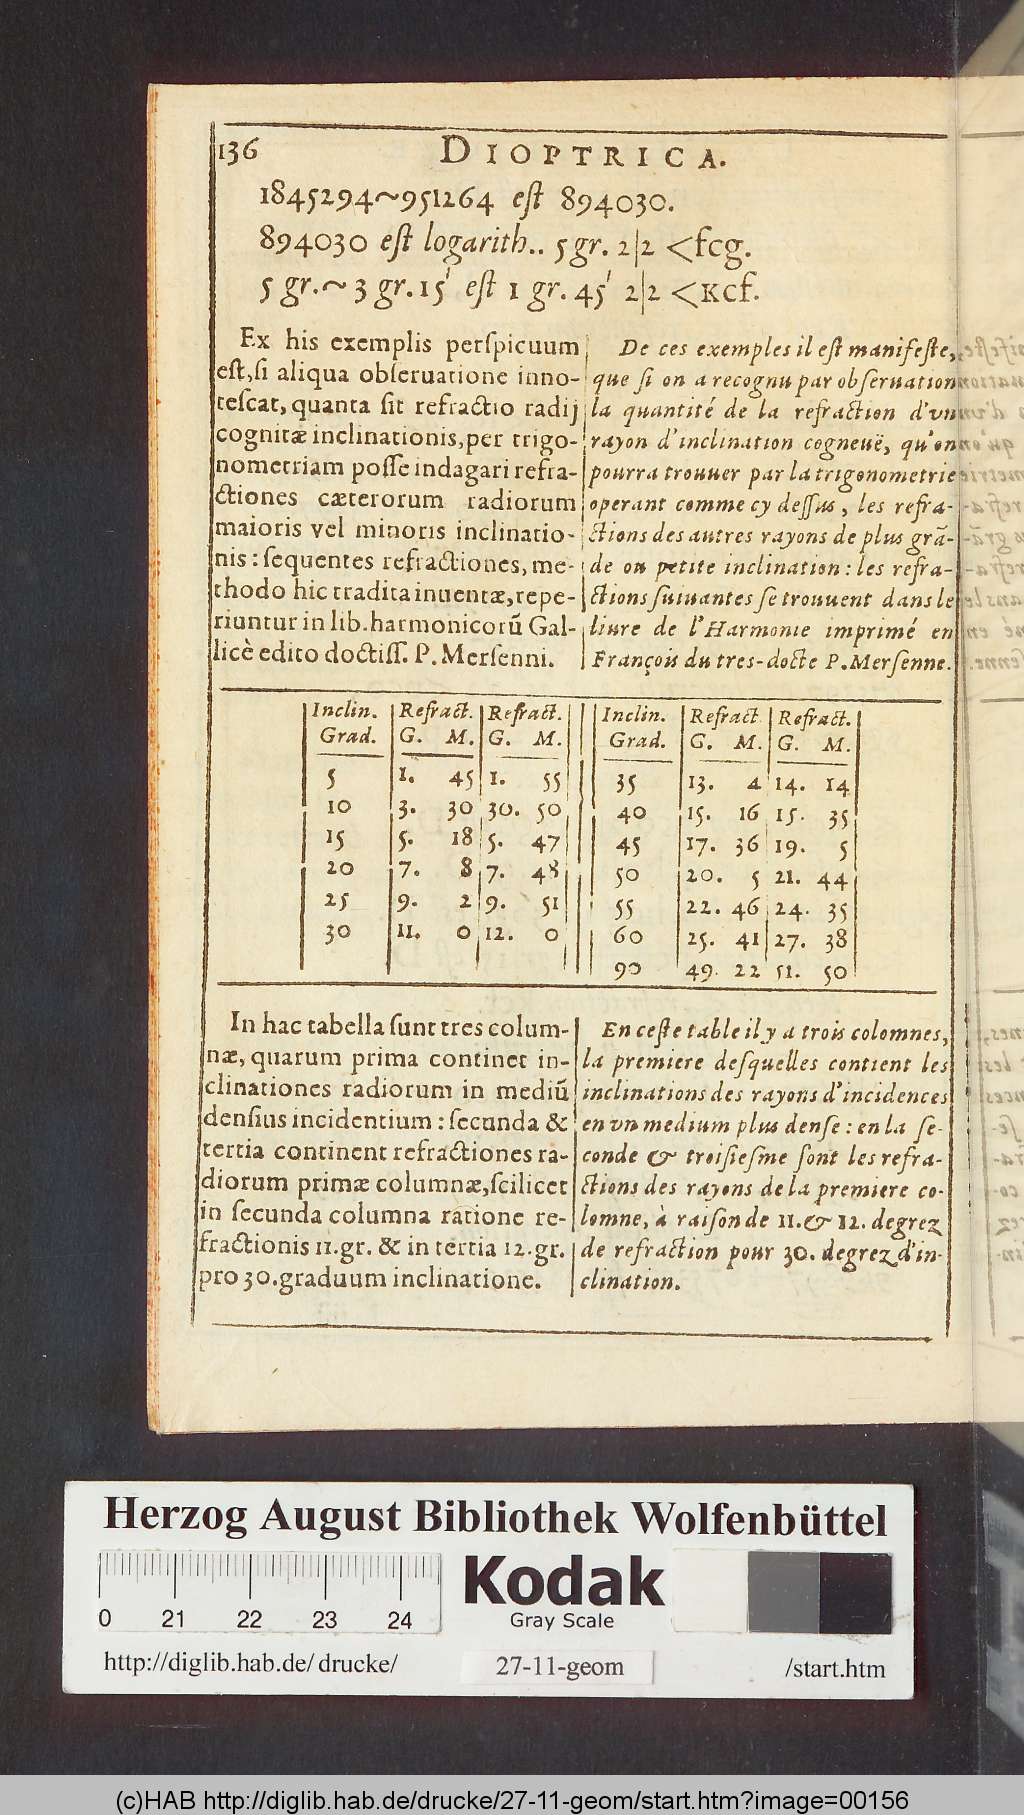 136 DIOPTRICA.
1845294~951264 eſt 894030.
894030 eſt logarith.. 5 gr. 2|2 <fcg.
5 gr.~ 3 gr. 15' eſt 1 gr. 45' 2|2 <KCf.
Ex his exemplis perſpicuum
eſt,ſi aliqua obſeruatione inno-
teſcat, quanta ſit refractio radij
cognitæ inclinationis, per trigo-
nometriam poſſe indagari refra-
ctiones cæterorum radiorum
maioris vel minoris inclinatio-
nis: ſequentes refractiones, me-
thodo hic tradita inuentæ, repe-
riuntur in lib. harmonicorū Gal-
licè edito doctiſſ. P. Merſenni.
De ces exemples il eſt manifeſte,
que ſi on a recognu par obſeruation
la quantité de la refraction d'vn
rayon d'inclination cogneuë, qu'on
pourra trouuer par la trigonometrie
operant comme cy deſſus, les refra-
ctions des autres rayons de plus grā-
de ou petite inclination: les refra-
ctions ſuiuantes ſe trouuent dans le
liure de l'Harmonie imprimé en
François du tres-docte P. Merſenne.
Inclin. Refract. Refract. Inclin. Refract Refract.
Grad. G. M. G. M. Grad. G. M. G. M.
5 1. 45 1. 55 35 13. 4 14. 14
10 3. 30 30. 50 40 15. 16 15. 35
15 5. 18 5. 47 45 17. 36 19. 5
20 7. 8 7. 48 50 20. 5 21. 44
25 9. 2 9. 51 55 22. 46 24. 35
30 11. 0 12. 0 60 25. 41 27. 38
90 49. 22 51. 50
In hac tabella ſunt tres colum-
næ, quarum prima continet in-
clinationes radiorum in mediū
denſius incidentium: ſecunda &
tertia continent refractiones ra-
diorum primæ columnæ, ſcilicet
in ſecunda columna ratione re-
fractionis 11. gr. & in tertia 12. gr.
pro 30. graduum inclinatione.
En ceſte table il y a trois colomnes,
la premiere deſquelles contient les
inclinations des rayons d'incidences
en vn medium plus denſe: en la ſe-
conde & troiſieſme ſont les refra-
ctions des rayons de la premiere co-
lomne, à raiſon de 11. & 12. degrez
de refraction pour 30. degrez d'in-
clination.
Herzog August Bibliothek Wolfenbüttel
0 21 22 23 24
Kodak
Gray Scale
http://diglib.hab.de/ drucke/ 27-11-geom /start.htm
(c)HAB http://diglib.hab.de/drucke/27-11-geom/start.htm?image=00156